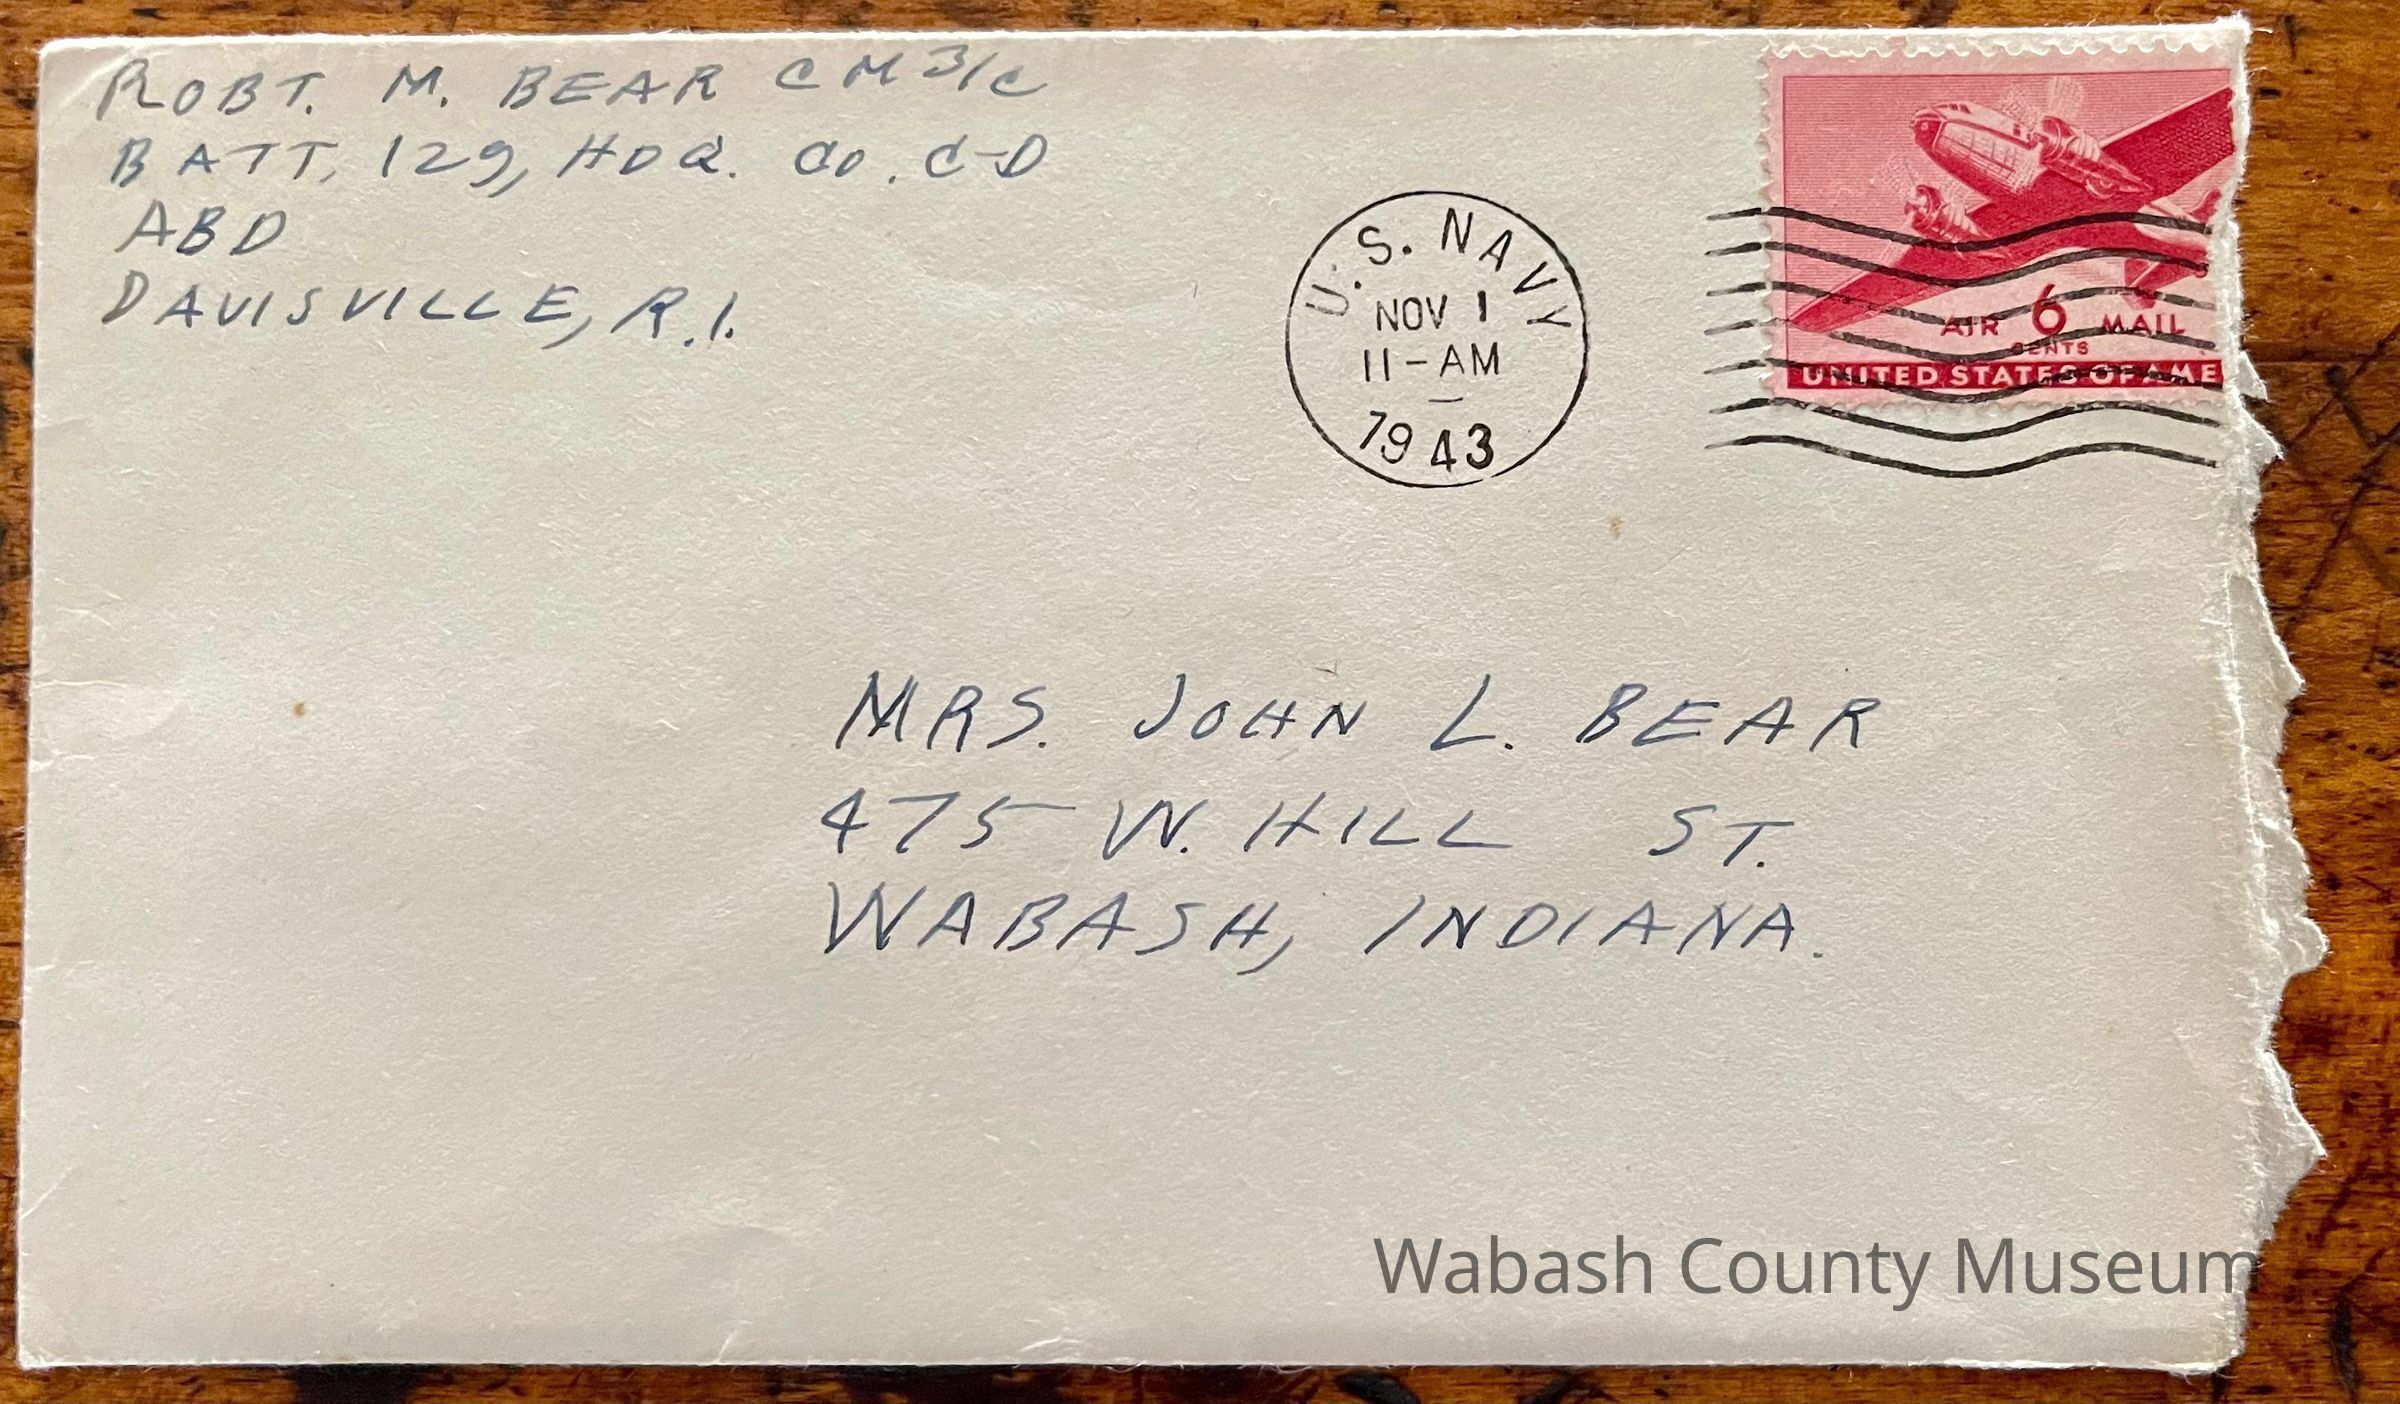 ROBT. M. BEAR CM 3/C
BATT. 129, HDQ. CO. C-D
ABD
DAVISVILLE, R.I.
U.S. NAVY
NOV 1
11-AM
1943
AIR 6 MAIL
CENTS
UNITED STATES OF AME
MRS. JOHN L. BEAR
475 W. HILL ST.
WABASH, INDIANA.
Wabash County Museum